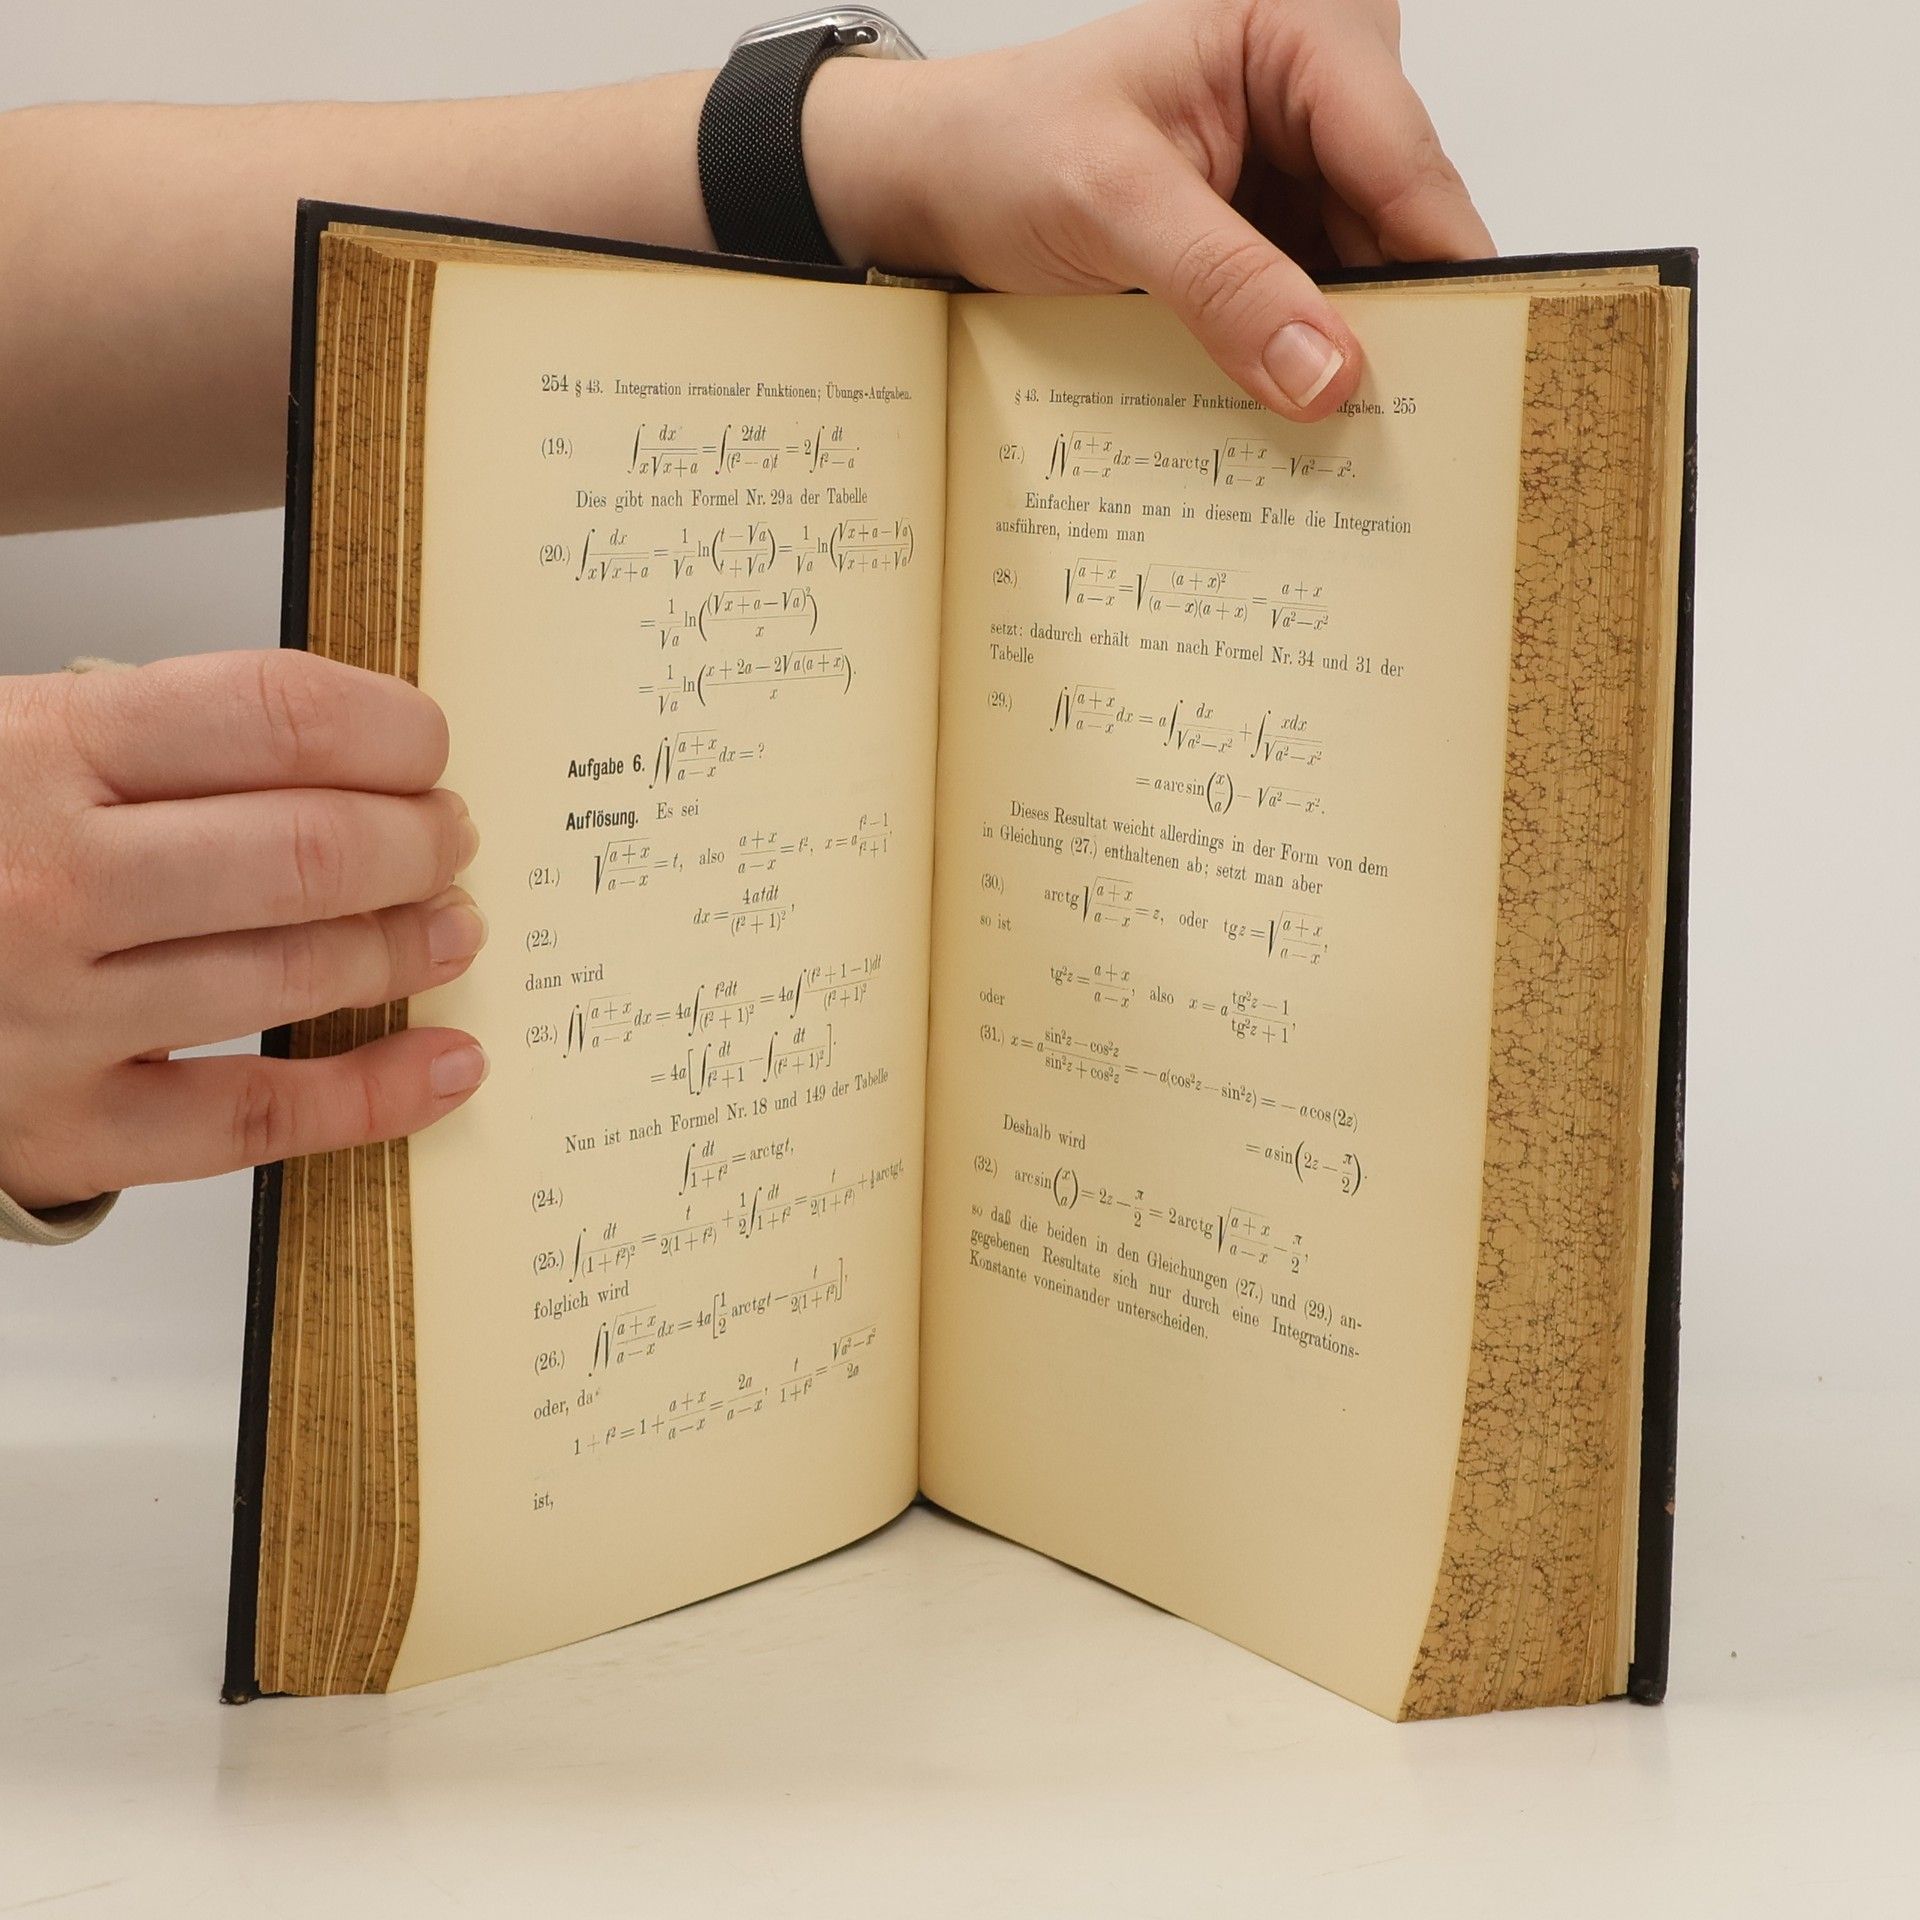 254 § 43. Integration irrationaler Funktionen; Übungs-Aufgaben.
(19.) ∫ dx/(x√(x+a)) = ∫ 2tdt/((t² − a)t) = 2∫ dt/(t² − a).
Dies gibt nach Formel Nr. 29a der Tabelle
(20.) ∫ dx/(x√(x+a)) = 1/√a ln((t − √a)/(t + √a)) = 1/√a ln((√(x+a) − √a)/(√(x+a) + √a))
= 1/√a ln((√(x+a) − √a)²/x)
= 1/√a ln((x + 2a − 2√(a(a+x)))/x).
Aufgabe 6. ∫√((a+x)/(a−x)) dx = ?
Auflösung. Es sei
(21.) √((a+x)/(a−x)) = t, also (a+x)/(a−x) = t², x = a (t²−1)/(t²+1),
(22.) dx = 4atdt/(t² + 1)²,
dann wird
(23.) ∫√((a+x)/(a−x)) dx = 4a∫ t²dt/(t² + 1)² = 4a∫ (t² + 1 − 1)dt/(t² + 1)²
= 4a[∫ dt/(t²+1) − ∫ dt/(t² + 1)²].
Nun ist nach Formel Nr. 18 und 149 der Tabelle
(24.) ∫ dt/(1+t²) = arctgt,
(25.) ∫ dt/(1+t²)² = t/(2(1+t²)) + 1/2 ∫ dt/(1+t²) = t/(2(1+t²)) + ½arctgt,
folglich wird
(26.) ∫√((a+x)/(a−x)) dx = 4a[1/2 arctgt − t/(2(1+t²))],
oder, da
1 + t² = 1 + (a+x)/(a−x) = 2a/(a−x), t/(1+t²) = √(a²−x²)/2a
ist,
§ 43. Integration irrationaler Funktionen; ufgaben. 255
(27.) ∫√((a+x)/(a−x)) dx = 2a arctg√((a+x)/(a−x)) − √(a²−x²).
Einfacher kann man in diesem Falle die Integration
ausführen, indem man
(28.) √((a+x)/(a−x)) = √((a+x)²/((a−x)(a+x))) = (a+x)/√(a²−x²)
setzt: dadurch erhält man nach Formel Nr. 34 und 31 der
Tabelle
(29.) ∫√((a+x)/(a−x)) dx = a∫ dx/√(a²−x²) + ∫ xdx/√(a²−x²)
= a arc sin(x/a) − √(a²−x²).
Dieses Resultat weicht allerdings in der Form von dem
in Gleichung (27.) enthaltenen ab; setzt man aber
(30.) arctg√((a+x)/(a−x)) = z, oder tgz = √((a+x)/(a−x)),
so ist
tg²z = (a+x)/(a−x), also x = a (tg²z − 1)/(tg²z + 1),
oder
(31.) x = a (sin²z − cos²z)/(sin²z + cos²z) = −a(cos²z − sin²z) = −a cos(2z)
= a sin(2z − π/2).
Deshalb wird
(32.) arcsin(x/a) = 2z − π/2 = 2arctg√((a+x)/(a−x)) − π/2,
so daß die beiden in den Gleichungen (27.) und (29.) an-
gegebenen Resultate sich nur durch eine Integrations-
Konstante voneinander unterscheiden.